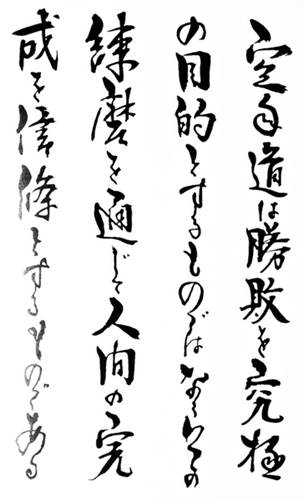 空手道は勝敗を究極
の目的とするものではなくの
練磨を通じて人間の完
成を信條とするものである